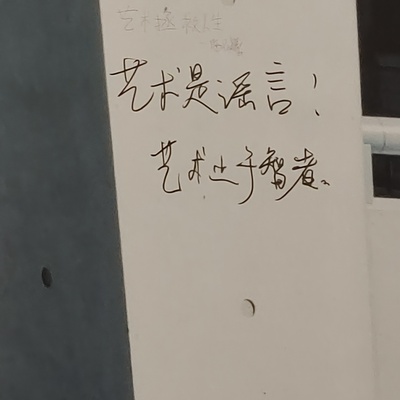 艺术拯救人生
艺术是谣言！
艺术止于智者。